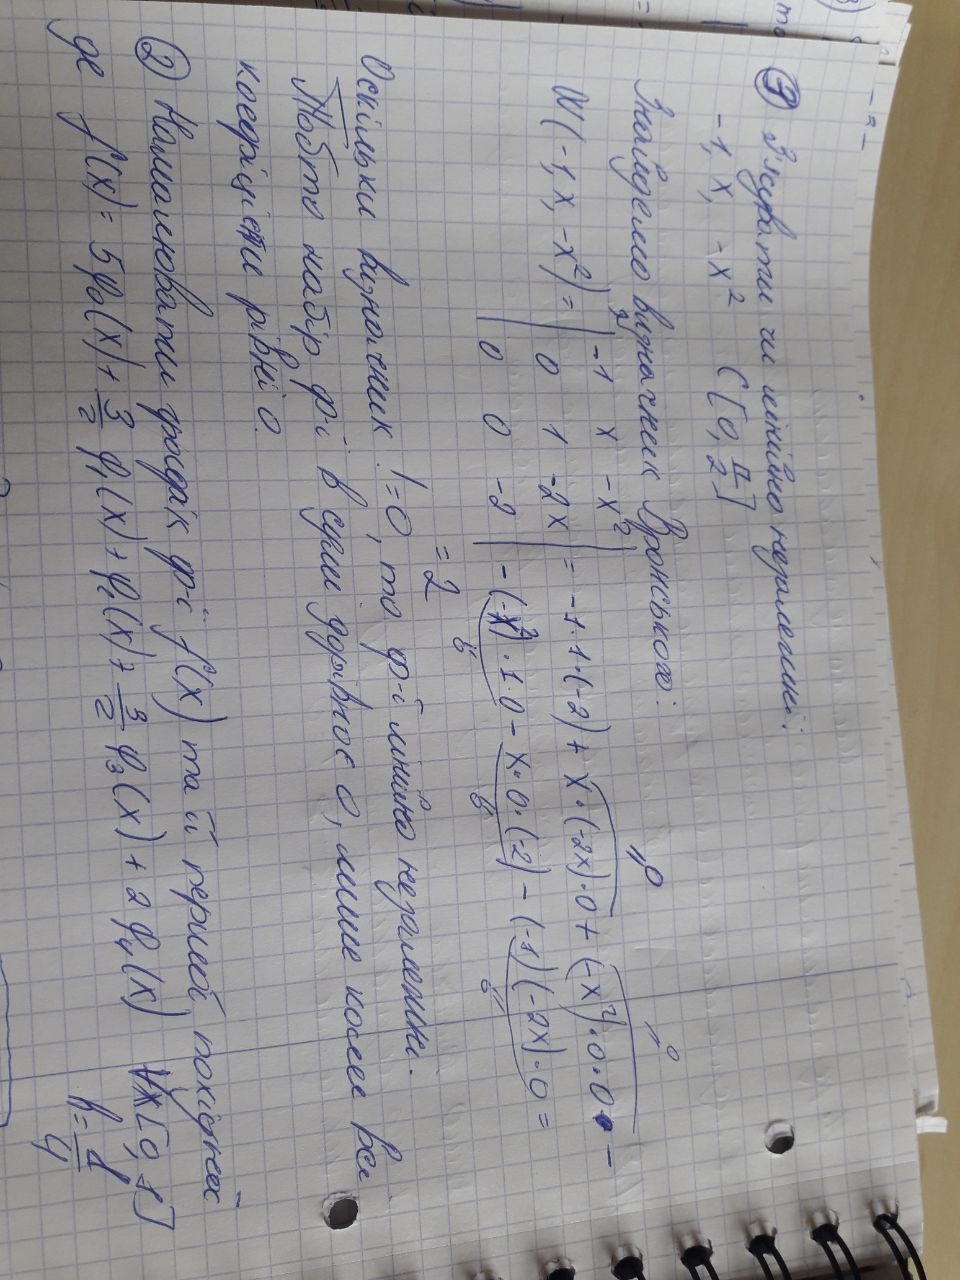 ① З'ясувати чи лінійно незалежні:
-1, x, -x² C[0, π/2]
Знайдемо визначник Вронського:
W(-1, x, -x²) = | -1 x -x² | = -1·1·(-2) + x·(-2x)·0 + (-x²)·0·0 -
| 0 1 -2x | - (-x²)·1·0 - x·0·(-2) - (-1)(-2x)·0 =
| 0 0 -2 |
= 2
Оскільки визначник != 0, то ф-ї лінійно незалежні.
Тобто набір ф-ї в сумі дорівнює 0, лише коли всі
коефіцієнти рівні 0.
② Намалювати графік ф-ї f(x) та її першої похідної
де f(x) = 5φ₀(x) + 3/2 φ₁(x) + φ₂(x) + 3/2 φ₃(x) + 2φ₄(x) ∀x[0, 1]
h = 1/4